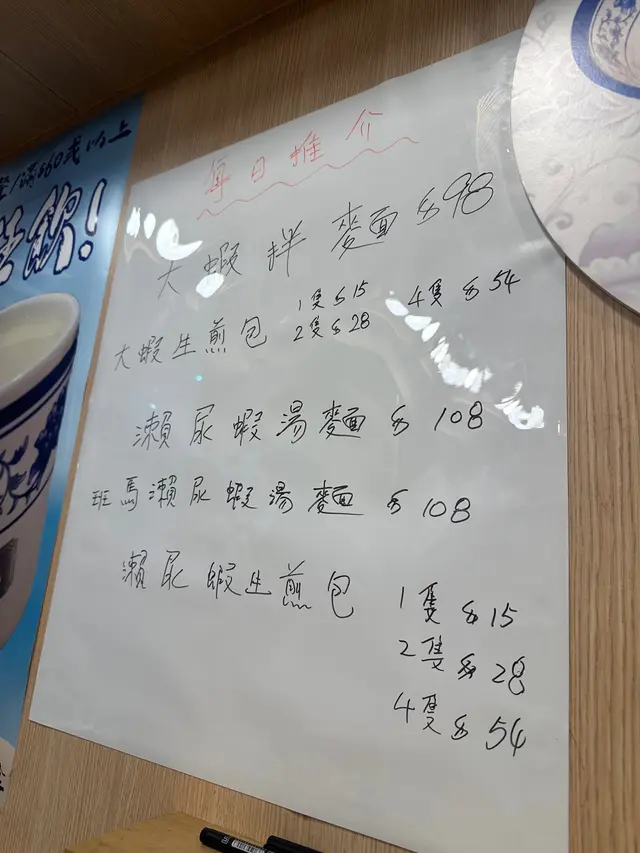 滿$60或以上
飲!
每日推介
大蝦拌麵 $98
大蝦生煎包 1隻$15 4隻$54
2隻$28
瀨尿蝦湯麵 $108
班馬瀨尿蝦湯麵 $108
瀨尿蝦生煎包 1隻$15
2隻$28
4隻$54